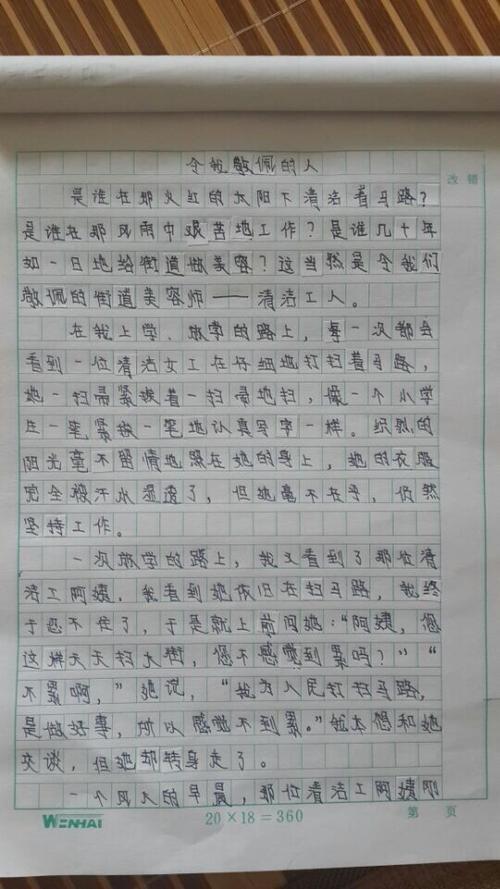 令我敬佩的人
改错
是谁在那火红的太阳下清洁着马路？
是谁在那风雨中艰苦地工作？是谁几十年
如一日地给街道做美容？这当然是令我们
敬佩的街道美容师——清洁工人。
在我上学、放学的路上，每一次都会
看到一位清洁女工在仔细地打扫着马路，
她一扫帚紧挨着一扫帚地扫，像一个小学
生一笔紧挨一笔地认真写字一样。炽热的
阳光毫不留情地照在她的身上，她的衣服
完全被汗水湿透了，但她毫不在乎，仍然
坚持工作。
一次放学的路上，我又看到了那位清
洁工阿姨，我看到她依旧在扫马路，我终
于忍不住了，于是就上前问她：“阿姨，您
这样天天扫大街，您不感觉到累吗？”“
不累啊，”她说，“我为人民打扫马路，
是做好事，所以感觉不到累。”我本想和她
交谈，但她却转身走了。
一个风大的早晨，那位清洁工阿姨刚
WENHAI
20×18=360
第 页